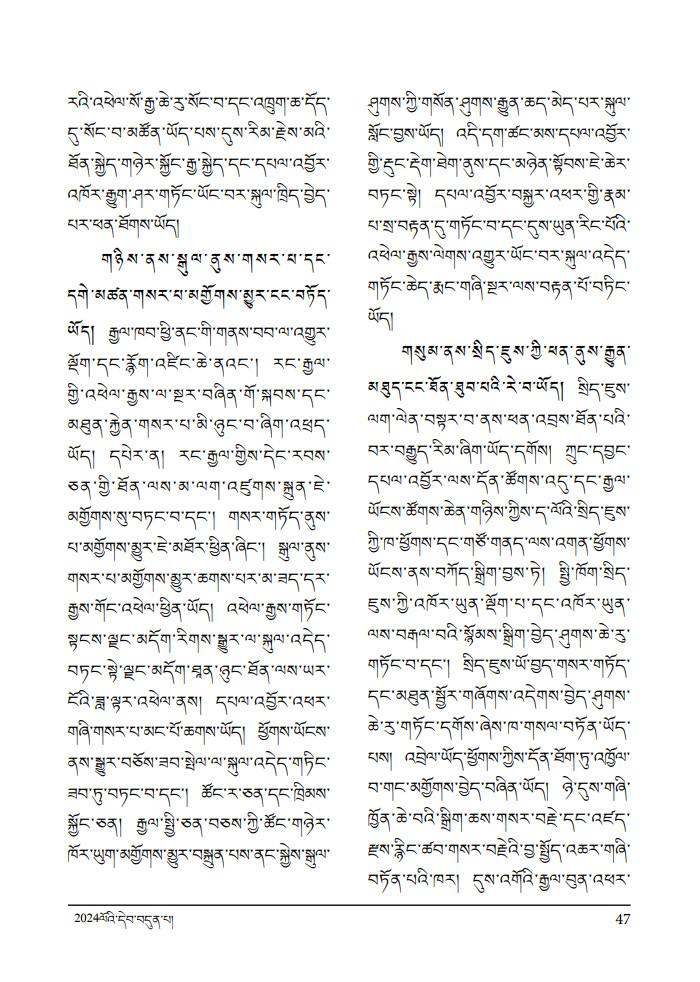 རའི་འཕེལ་སོ་རྒྱ་ཆེ་རུ་སོང་བ་དང་འཁྲུག་ཆ་དོད་
དུ་སོང་བ་མཚོན་ཡོད་པས་དུས་རིམ་རྗེས་མའི་
ཐོན་སྐྱེད་གཉེར་སྐྱོང་རྒྱ་སྐྱེད་དང་དཔལ་འབྱོར་
འཁོར་རྒྱུག་ཤར་གཏོང་ཡོང་བར་སྐུལ་ཁྲིད་བྱེད་
པར་ཕན་ཐོགས་ཡོད།
གཉིས་ནས་སྒུལ་ནུས་གསར་པ་དང་
དགེ་མཚན་གསར་པ་མགྱོགས་མྱུར་ངང་བཏོད་
ཡོད། རྒྱལ་ཁབ་ཕྱི་ནང་གི་གནས་བབ་ལ་འགྱུར་
ལྡོག་དང་རྙོག་འཛིང་ཆེ་ནའང་། རང་རྒྱལ་
གྱི་འཕེལ་རྒྱས་ལ་སྔར་བཞིན་གོ་སྐབས་དང་
མཐུན་རྐྱེན་གསར་པ་མི་ཉུང་བ་ཞིག་འཕྲད་
ཡོད། དཔེར་ན། རང་རྒྱལ་གྱིས་དེང་རབས་
ཅན་གྱི་ཐོན་ལས་མ་ལག་འཛུགས་སྐྲུན་ཇེ་
མགྱོགས་སུ་བཏང་བ་དང་། གསར་གཏོད་ནུས་
པ་མགྱོགས་མྱུར་ཇེ་མཐོར་ཕྱིན་ཞིང་། སྒུལ་ནུས་
གསར་པ་མགྱོགས་མྱུར་ཆགས་པར་མ་ཟད་དར་
རྒྱས་གོང་འཕེལ་ཕྱིན་ཡོད། འཕེལ་རྒྱས་གཏོང་
སྟངས་ལྗང་མདོག་རིགས་སྒྱུར་ལ་སྐུལ་འདེད་
བཏང་སྟེ་ལྗང་མདོག་ཐན་ཉུང་ཐོན་ལས་ཡར་
ངོའི་ཟླ་ལྟར་འཕེལ་ནས། དཔལ་འབྱོར་འཕར་
གཞི་གསར་པ་མང་པོ་ཆགས་ཡོད། ཕྱོགས་ཡོངས་
ནས་སྒྱུར་བཅོས་ཟབ་སྤེལ་ལ་སྐུལ་འདེད་གཏིང་
ཟབ་ཏུ་བཏང་བ་དང་། ཚོང་ར་ཅན་དང་ཁྲིམས་
སྐྱོང་ཅན། རྒྱལ་སྤྱི་ཅན་བཅས་ཀྱི་ཚོང་གཉེར་
ཁོར་ཡུག་མགྱོགས་མྱུར་བསྐྲུན་པས་ནང་སྐྱེས་སྒུལ་
ཤུགས་ཀྱི་གསོན་ཤུགས་རྒྱུན་ཆད་མེད་པར་སྐུལ་
སློང་བྱས་ཡོད། འདི་དག་ཚང་མས་དཔལ་འབྱོར་
གྱི་རྡུང་རྡེག་ཐེག་ནུས་དང་མཉེན་སྟོབས་ཇེ་ཆེར་
བཏང་སྟེ། དཔལ་འབྱོར་བསྐྱར་འཕར་གྱི་རྣམ་
པ་སྲ་བརྟན་དུ་གཏོང་བ་དང་དུས་ཡུན་རིང་པོའི་
འཕེལ་རྒྱས་ལེགས་འགྱུར་ཡོང་བར་སྐུལ་འདེད་
གཏོང་ཆེད་རྨང་གཞི་སྔར་ལས་བརྟན་པོ་བཏིང་
ཡོད།
གསུམ་ནས་སྲིད་ཇུས་ཀྱི་ཕན་ནུས་རྒྱུན་
མཐུད་ངང་ཐོན་ཐུབ་པའི་རེ་བ་ཡོད། སྲིད་ཇུས་
ལག་ལེན་བསྟར་བ་ནས་ཕན་འབྲས་ཐོན་པའི་
བར་བརྒྱུད་རིམ་ཞིག་ཡོད་དགོས། ཀྲུང་དབྱང་
དཔལ་འབྱོར་ལས་དོན་ཚོགས་འདུ་དང་རྒྱལ་
ཡོངས་ཚོགས་ཆེན་གཉིས་ཀྱིས་ད་ལོའི་སྲིད་ཇུས་
ཀྱི་ཁ་ཕྱོགས་དང་གཙོ་གནད་ལས་འགན་ཕྱོགས་
ཡོངས་ནས་བཀོད་སྒྲིག་བྱས་ཏེ། སྤྱི་ཁོག་སྲིད་
ཇུས་ཀྱི་འཁོར་ཡུན་ལྡོག་པ་དང་འཁོར་ཡུན་
ལས་བརྒལ་བའི་སྙོམས་སྒྲིག་བྱེད་ཤུགས་ཆེ་རུ་
གཏོང་བ་དང་། སྲིད་ཇུས་ཡོ་བྱད་གསར་གཏོད་
དང་མཐུན་སྦྱོར་གཞོགས་འདེགས་བྱེད་ཤུགས་
ཆེ་རུ་གཏོང་དགོས་ཞེས་ཁ་གསལ་བཏོན་ཡོད་
པས། འབྲེལ་ཡོད་ཕྱོགས་ཀྱིས་དོན་ཐོག་ཏུ་འཁྱོལ་
བ་གང་མགྱོགས་བྱེད་བཞིན་ཡོད། ཉེ་དུས་གཞི་
ཁྱོན་ཆེ་བའི་སྒྲིག་ཆས་གསར་བརྗེ་དང་འཛད་
རྫས་རྙིང་ཚབ་གསར་བརྗེའི་བྱ་སྤྱོད་འཆར་གཞི་
བཏོན་པའི་ཁར། དུས་འགོའི་རྒྱལ་བུན་འཕར་
2024ལོའི་དེབ་བདུན་པ། 47